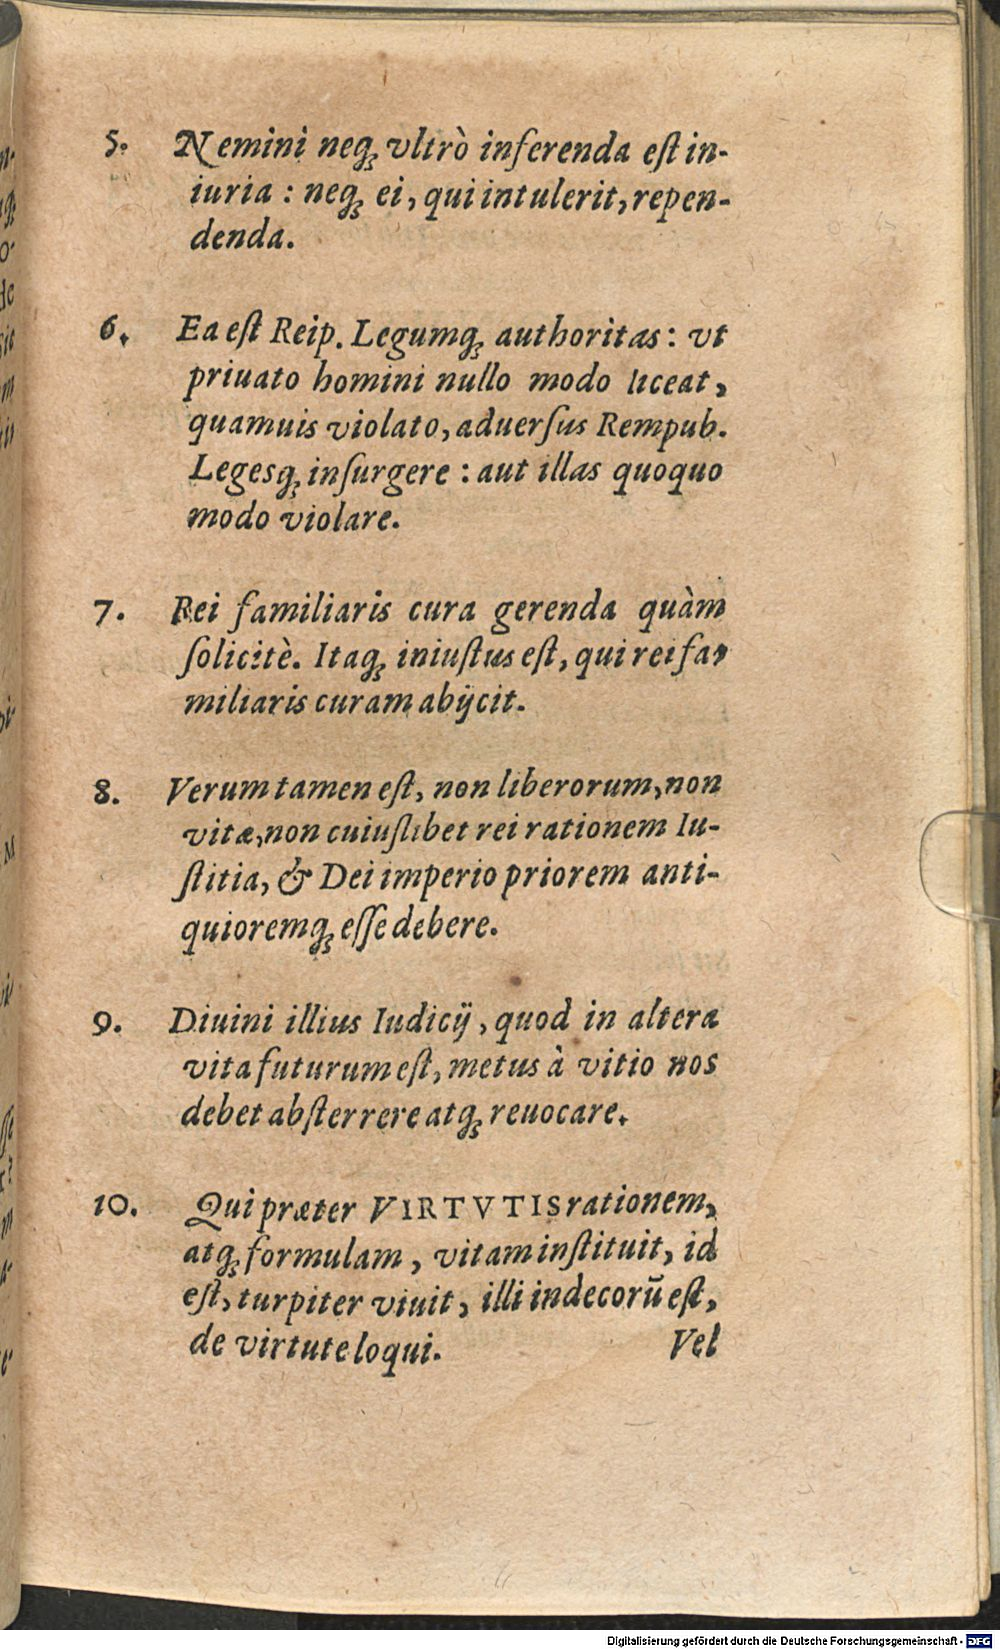 5. Nemini neq́; vltrò inferenda est in-
iuria : neq́; ei, qui intulerit, repen-
denda.
6. Ea est Reip. Legumq́; authoritas: vt
priuato homini nullo modo liceat,
quamuis violato, aduersus Rempub.
Legesq́; insurgere : aut illas quoquo
modo violare.
7. Rei familiaris cura gerenda quàm
solicitè. Itaq́; iniustus est, qui rei fa-
miliaris curam abijcit.
8. Verum tamen est, non liberorum, non
vitæ, non cuiuslibet rei rationem Iu-
stitia, & Dei imperio priorem anti-
quioremq́; esse debere.
9. Diuini illius Iudicij, quod in altera
vita futurum est, metus à vitio nos
debet absterrere atq́; reuocare.
10. Qui præter VIRTVTIS rationem,
atq́; formulam, vitam instituit, id
est, turpiter viuit, illi indecorũ est,
de virtute loqui.
Vel
Digitalisierung gefördert durch die Deutsche Forschungsgemeinschaft - DFG